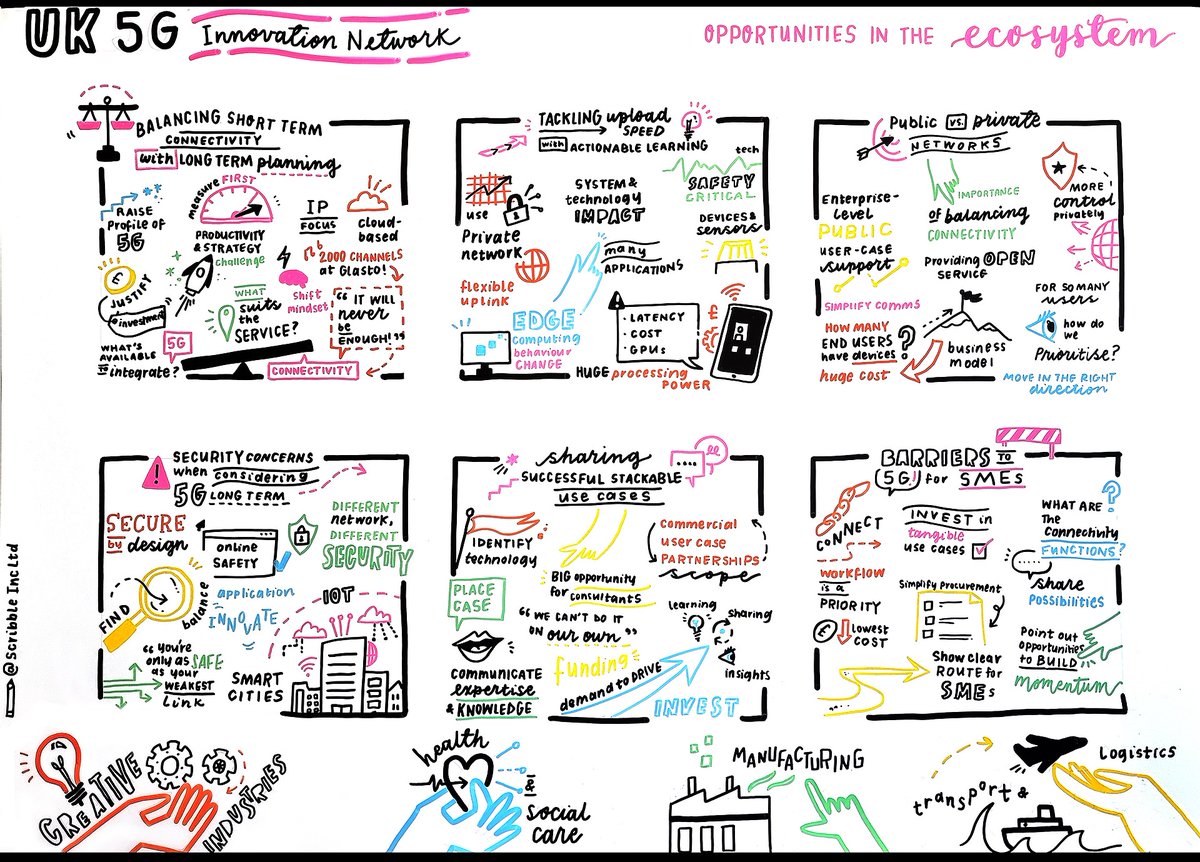 UK 5G Innovation Network
OPPORTUNITIES IN THE ecosystem
BALANCING SHORT TERM
CONNECTIVITY
with LONG TERM planning
RAISE
Profile of
5G
measure FIRST
PRODUCTIVITY
& STRATEGY
challenge
IP
FOCUS
cloud-
based
£
JUSTIFY
investment
2000 CHANNELS
at Glasto!
shift
mindset
WHAT
suits
the
SERVICE?
"IT WILL
never
be
ENOUGH!"
WHAT'S
AVAILABLE
TO integrate?
5G
CONNECTIVITY
TACKLING upload
SPEED
with ACTIONABLE LEARNING
use
Private
network
flexible
uplink
SYSTEM &
technology
IMPACT
many
APPLICATIONS
tech
SAFETY
CRITICAL
DEVICES &
sensors
EDGE
computing
behaviour
CHANGE
• LATENCY
• COST
• GPUs
£
HUGE processing
POWER
Public vs. private
NETWORKS
Enterprise-
Level
PUBLIC
USER-CASE
support
IMPORTANCE
of balancing
CONNECTIVITY
Providing OPEN
SERVICE
MORE
control
privately
SIMPLIFY COMMS
HOW MANY
END USERS
have devices?
huge cost
business
model
FOR SO MANY
users
how do
we
Prioritise?
MOVE IN THE RIGHT
direction
SECURITY CONCERNS
when considering
5G LONG TERM
!
SECURE
by design
online
SAFETY
DIFFERENT
network,
DIFFERENT
SECURITY
FIND
balance
application
INNOVATE
IOT
"You're
only as SAFE
as your
WEAKEST
link
SMART
CITIES
sharing
SUCCESSFUL STACKABLE
use cases
IDENTIFY
technology
commercial
user case
PARTNERSHIPS
scope
PLACE
CASE
BIG opportunity
for consultants
"WE CAN'T DO IT
ON our own"
learning
sharing
insights
COMMUNICATE
expertise
& KNOWLEDGE
funding
demand to DRIVE
INVEST
BARRIERS TO
5G! for SMEs
CONNECT
INVEST in
tangible
use cases
WHAT ARE
The
Connectivity
FUNCTIONS?
workflow
IS a
PRIORITY
Simplify procurement
share
possibilities
£ LOWEST
COST
Show clear
ROUTE for
SMEs
Point out
opportunities
to BUILD
momentum
@Scribble Inc Ltd
CREATIVE
INDUSTRIES
health
&
social
care
MANUFACTURING
transport &
Logistics